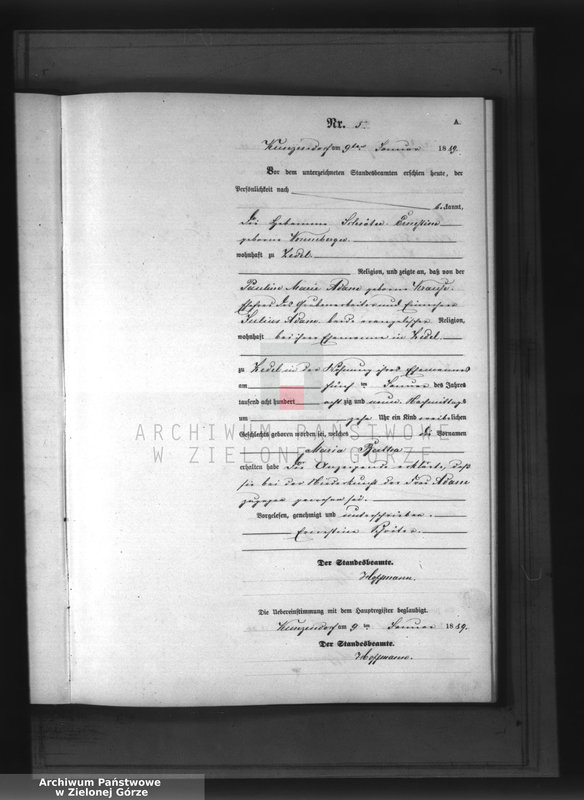 Nr. 5
A.
Kunzendorf am 9ten Januar 1889.
Vor dem unterzeichneten Standesbeamten erschien heute, der
Persönlichkeit nach
bekannt,
die Hebamme Ernestine
geborne
wohnhaft zu Zedel
Religion, und zeigte an, daß von der
Pauline Marie Adam geborne Krause
Ehefrau des Grubenarbeiter und
Julius Adam beide evangelischer Religion,
wohnhaft bei ihrem Ehemanne in Zedel
zu Zedel in der Wohnung ihres Ehemannes
am fünften Januar des Jahres
tausend acht hundert achtzig und neun Nachmittags
um zehn Uhr ein Kind weiblichen
Geschlechts geboren worden sei, welches die Vornamen
Maria Bertha
erhalten habe Die Anzeigende erklärte, daß
sie bei der Niederkunft der Frau Adam
zugegen gewesen sei.
Vorgelesen, genehmigt und unterschrieben
Ernestine
Der Standesbeamte.
Hoffmann.
Die Uebereinstimmung mit dem Hauptregister beglaubigt.
Kunzendorf am 9ten Januar 1889.
Der Standesbeamte.
Hoffmann.
ARCHIWUM PAŃSTWOWE
W ZIELONEJ GÓRZE
Archiwum Państwowe
w Zielonej Górze